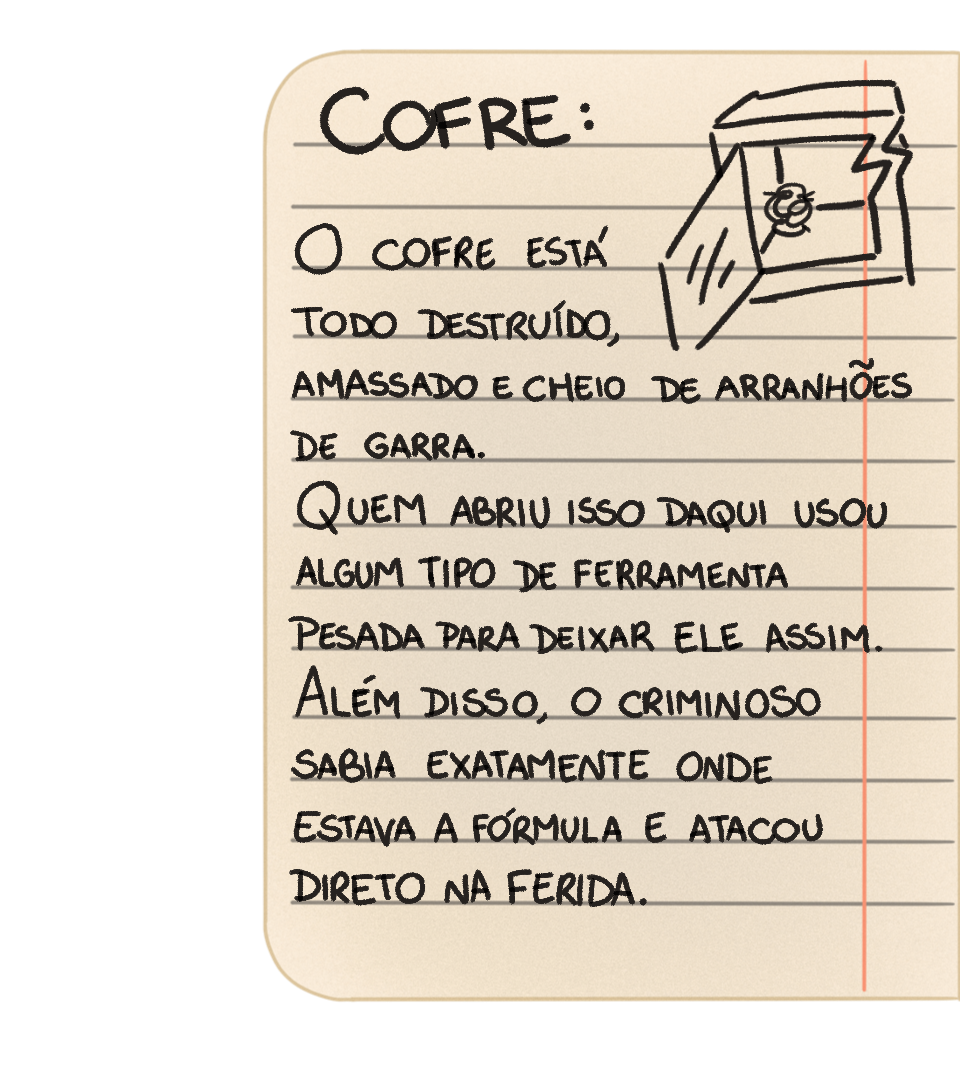 COFRE:
O COFRE ESTÁ
TODO DESTRUÍDO,
AMASSADO E CHEIO DE ARRANHÕES
DE GARRA.
QUEM ABRIU ISSO DAQUI USOU
ALGUM TIPO DE FERRAMENTA
PESADA PARA DEIXAR ELE ASSIM.
ALÉM DISSO, O CRIMINOSO
SABIA EXATAMENTE ONDE
ESTAVA A FÓRMULA E ATACOU
DIRETO NA FERIDA.